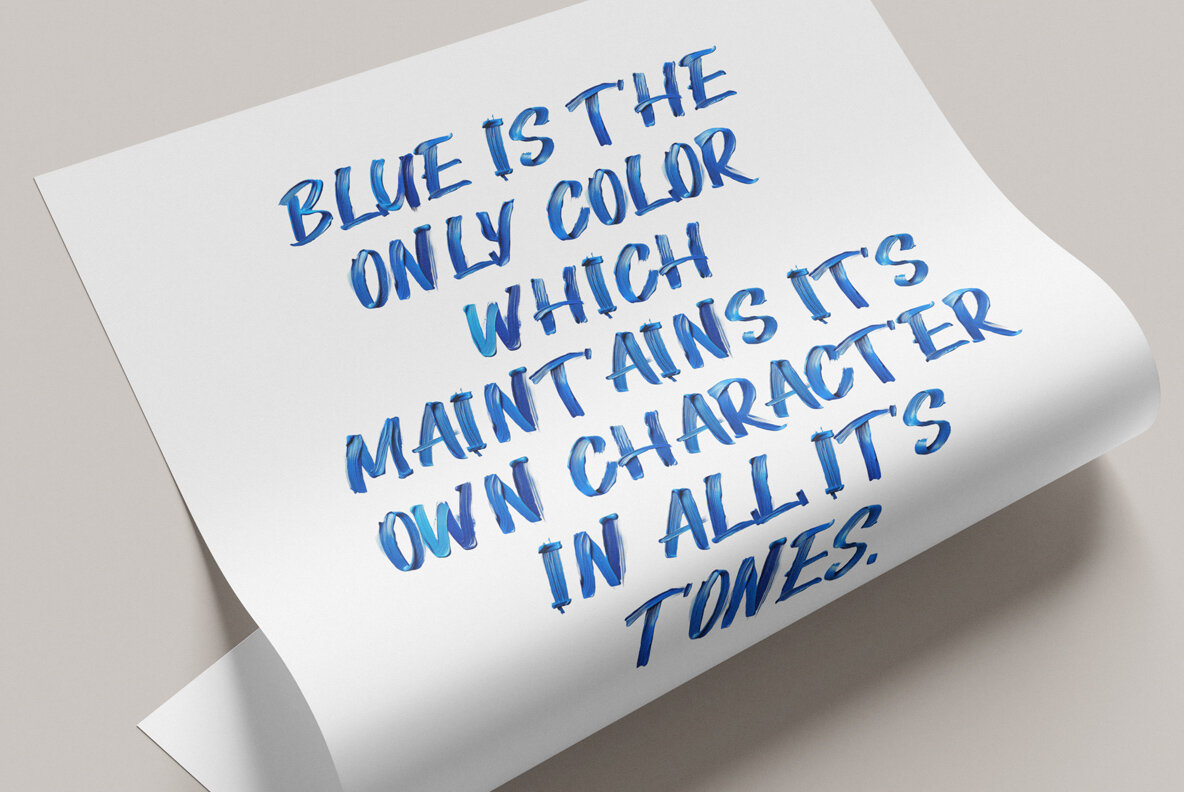 BLUE IS THE
ONLY COLOR
WHICH
MAINTAINS ITS
OWN CHARACTER
IN ALL ITS
TONES.